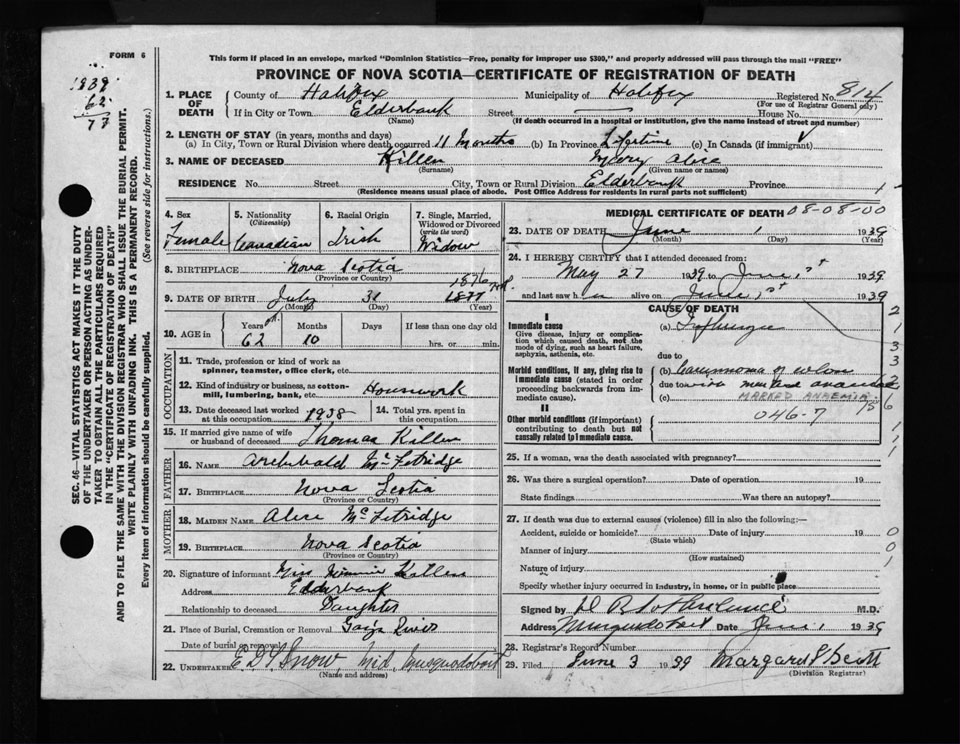 FORM 6
1939
62
77
This form if placed in an envelope, marked "Dominion Statistics—Free, penalty for improper use $300," and properly addressed will pass through the mail "FREE"
PROVINCE OF NOVA SCOTIA—CERTIFICATE OF REGISTRATION OF DEATH
1. PLACE OF DEATH County of Halifax Municipality of Halifax Registered No. 814
(For use of Registrar General only)
If in City or Town Elderbank Street House No.
(Name) (If death occurred in a hospital or institution, give the name instead of street and number)
2. LENGTH OF STAY (in years, months and days)
(a) In City, Town or Rural Division where death occurred 11 Months (b) In Province Lifetime (c) In Canada (if immigrant)
3. NAME OF DECEASED Killen Mary Alice
(Surname) (Given name or names)
RESIDENCE No. Street City, Town or Rural Division Elderbank Province
(Residence means usual place of abode. Post Office Address for residents in rural parts not sufficient)
4. Sex Female
5. Nationality (Citizenship) Canadian
6. Racial Origin Irish
7. Single, Married, Widowed or Divorced (write the word) Widow
8. BIRTHPLACE Nova Scotia
(Province or Country)
1876
9. DATE OF BIRTH July 31 1877
(Month) (Day) (Year)
10. AGE in Years 62 Months 10 Days If less than one day old
hrs. or min.
OCCUPATION
11. Trade, profession or kind of work as spinner, teamster, office clerk, etc.
12. Kind of industry or business, as cotton-mill, lumbering, bank, etc. Housework
13. Date deceased last worked at this occupation 1938
14. Total yrs. spent in this occupation
15. If married give name of wife or husband of deceased Thomas Killen
FATHER
16. NAME Archibald McFetridge
17. BIRTHPLACE Nova Scotia
(Province or Country)
MOTHER
18. MAIDEN NAME Alice McFetridge
19. BIRTHPLACE Nova Scotia
(Province or Country)
20. Signature of informant Miss Minnie Killen
Address Elderbank
Relationship to deceased Daughter
21. Place of Burial, Cremation or Removal Gays River
Date of burial or removal
22. UNDERTAKER E D Snow, Mid Musquodoboit
(Name and address)
MEDICAL CERTIFICATE OF DEATH 08-08-00
23. DATE OF DEATH June 1 1939
(Month) (Day) (Year)
24. I HEREBY CERTIFY that I attended deceased from:
May 27 1939 to June 1st 1939
and last saw h alive on June 1st 1939
CAUSE OF DEATH
I
Immediate cause
Give disease, injury or complication which caused death, not the mode of dying, such as heart failure, asphyxia, asthenia, etc.
(a)
due to
Morbid conditions, if any, giving rise to immediate cause (stated in order proceeding backwards from immediate cause).
(b) Carcinoma of colon
due to
(c) MARKED ANAEMIA
046-7
II
Other morbid conditions (if important) contributing to death but not causally related to immediate cause.
25. If a woman, was the death associated with pregnancy?
26. Was there a surgical operation? Date of operation 19
State findings Was there an autopsy?
27. If death was due to external causes (violence) fill in also the following:—
Accident, suicide or homicide? Date of injury 19
(State which)
Manner of injury
(How sustained)
Nature of injury
Specify whether injury occurred in industry, in home, or in public place
Signed by M.D.
Address Musquodoboit Date June 1 1939
28. Registrar's Record Number
29. Filed June 3 1939 Margaret Scott
(Division Registrar)
SEC. 46—VITAL STATISTICS ACT MAKES IT THE DUTY
OF THE UNDERTAKER OR PERSON ACTING AS UNDER-
TAKER TO OBTAIN ALL THE PARTICULARS REQUIRED
IN THE "CERTIFICATE OF REGISTRATION OF DEATH"
AND TO FILE THE SAME WITH THE DIVISION REGISTRAR WHO SHALL ISSUE THE BURIAL PERMIT.
WRITE PLAINLY WITH UNFADING INK. THIS IS A PERMANENT RECORD.
Every item of information should be carefully supplied. (See reverse side for instructions.)